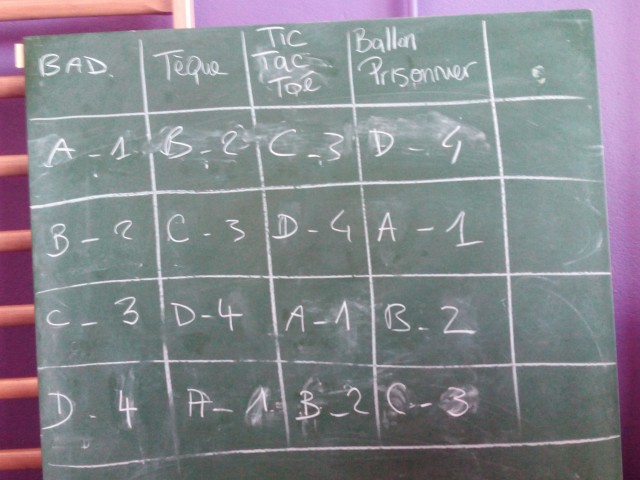 BAD. Tèque Tic Tac Toe Ballon Prisonnier
A - 1 B - 2 C - 3 D - 4
B - 2 C - 3 D - 4 A - 1
C - 3 D - 4 A - 1 B - 2
D - 4 A - 1 B - 2 C - 3